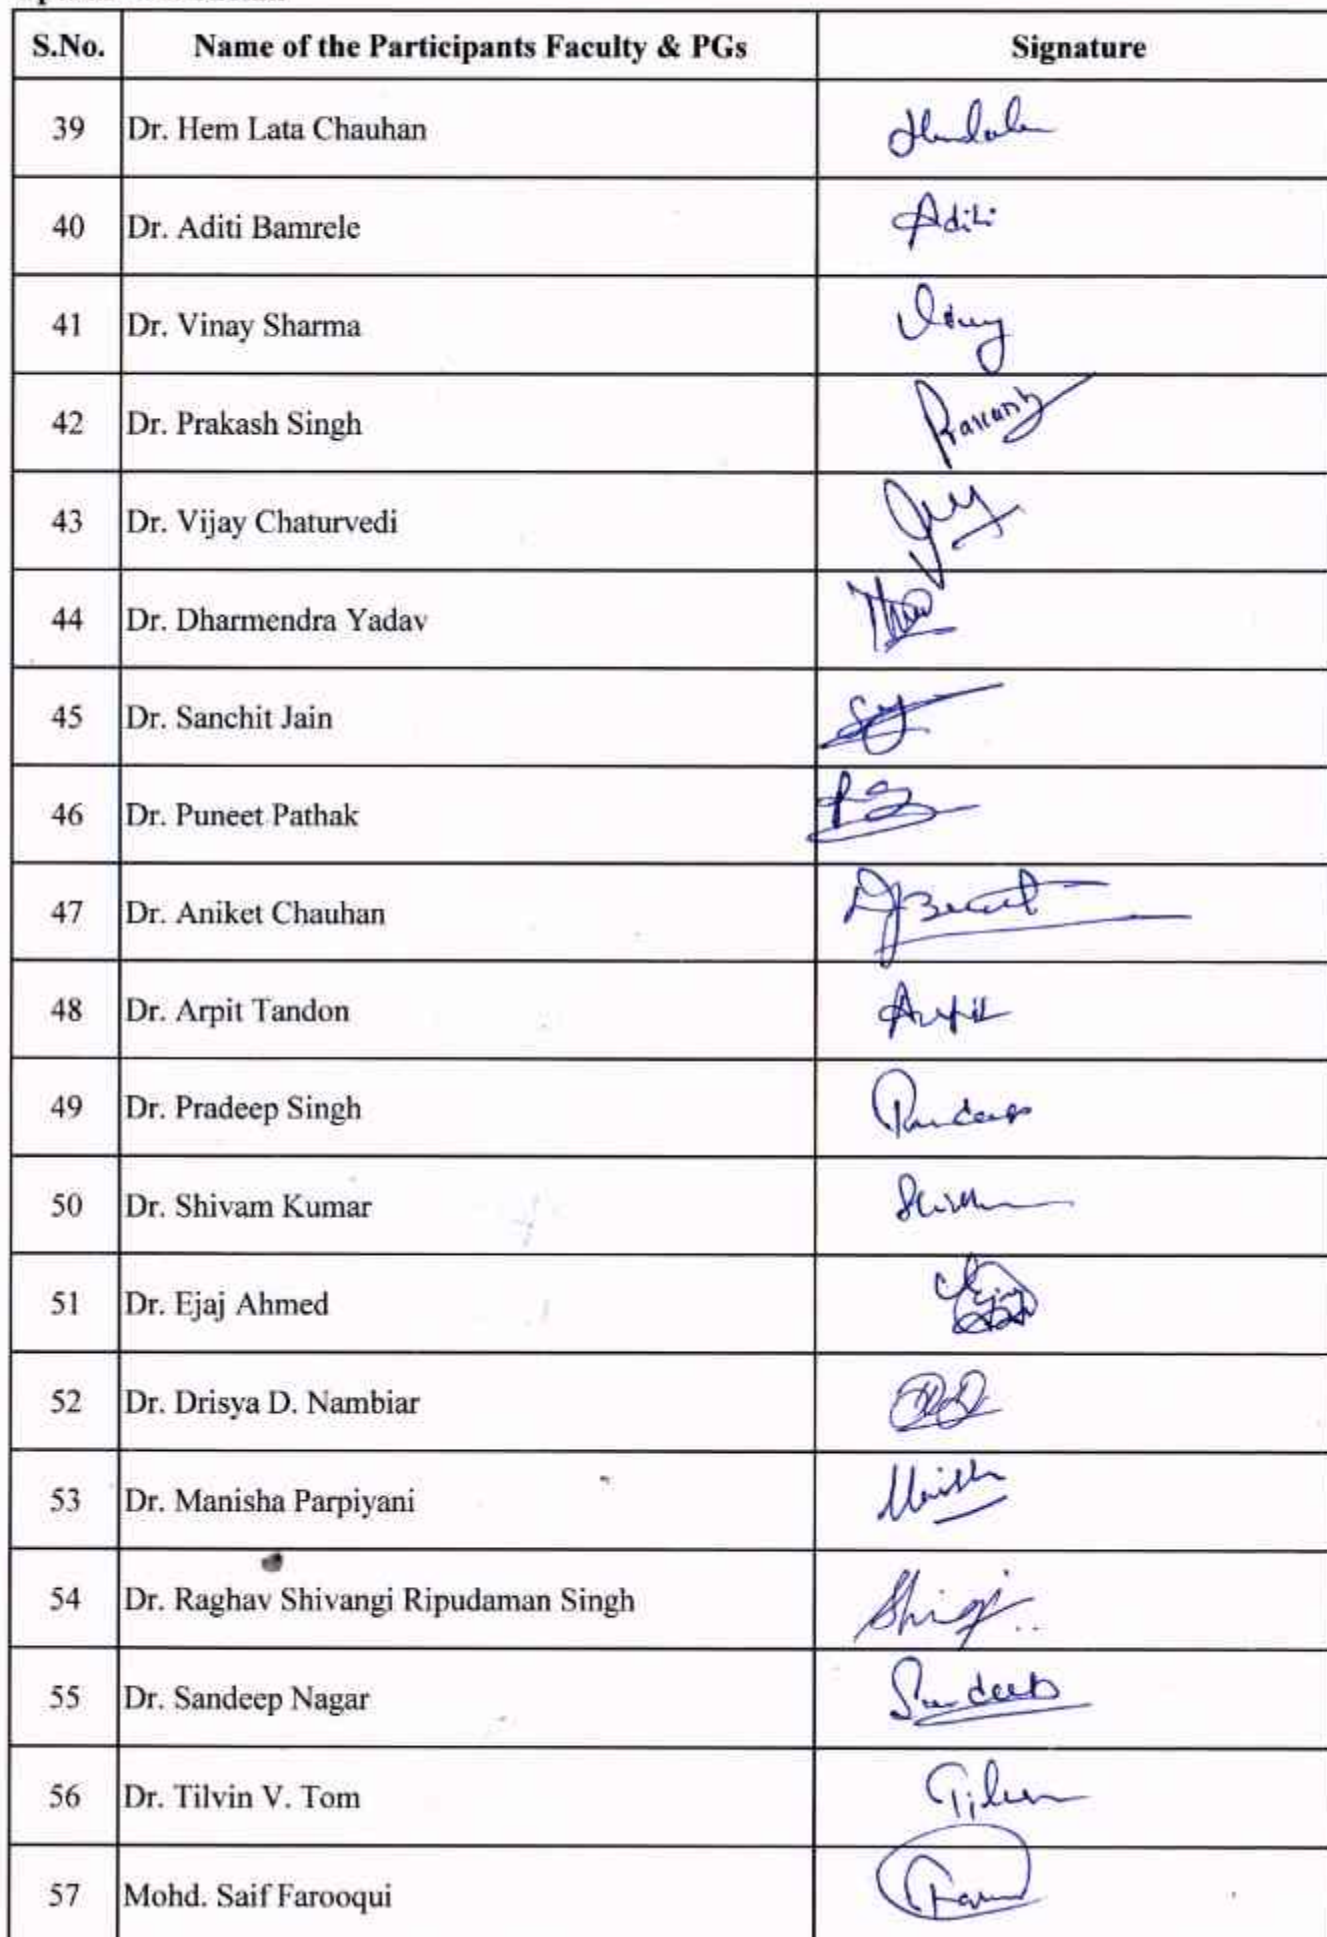 S.No. Name of the Participants Faculty & PGs Signature
39 Dr. Hem Lata Chauhan
40 Dr. Aditi Bamrele Aditi
41 Dr. Vinay Sharma
42 Dr. Prakash Singh
43 Dr. Vijay Chaturvedi
44 Dr. Dharmendra Yadav
45 Dr. Sanchit Jain
46 Dr. Puneet Pathak
47 Dr. Aniket Chauhan
48 Dr. Arpit Tandon Arpit
49 Dr. Pradeep Singh
50 Dr. Shivam Kumar
51 Dr. Ejaj Ahmed
52 Dr. Drisya D. Nambiar
53 Dr. Manisha Parpiyani
54 Dr. Raghav Shivangi Ripudaman Singh
55 Dr. Sandeep Nagar Sandeep
56 Dr. Tilvin V. Tom
57 Mohd. Saif Farooqui